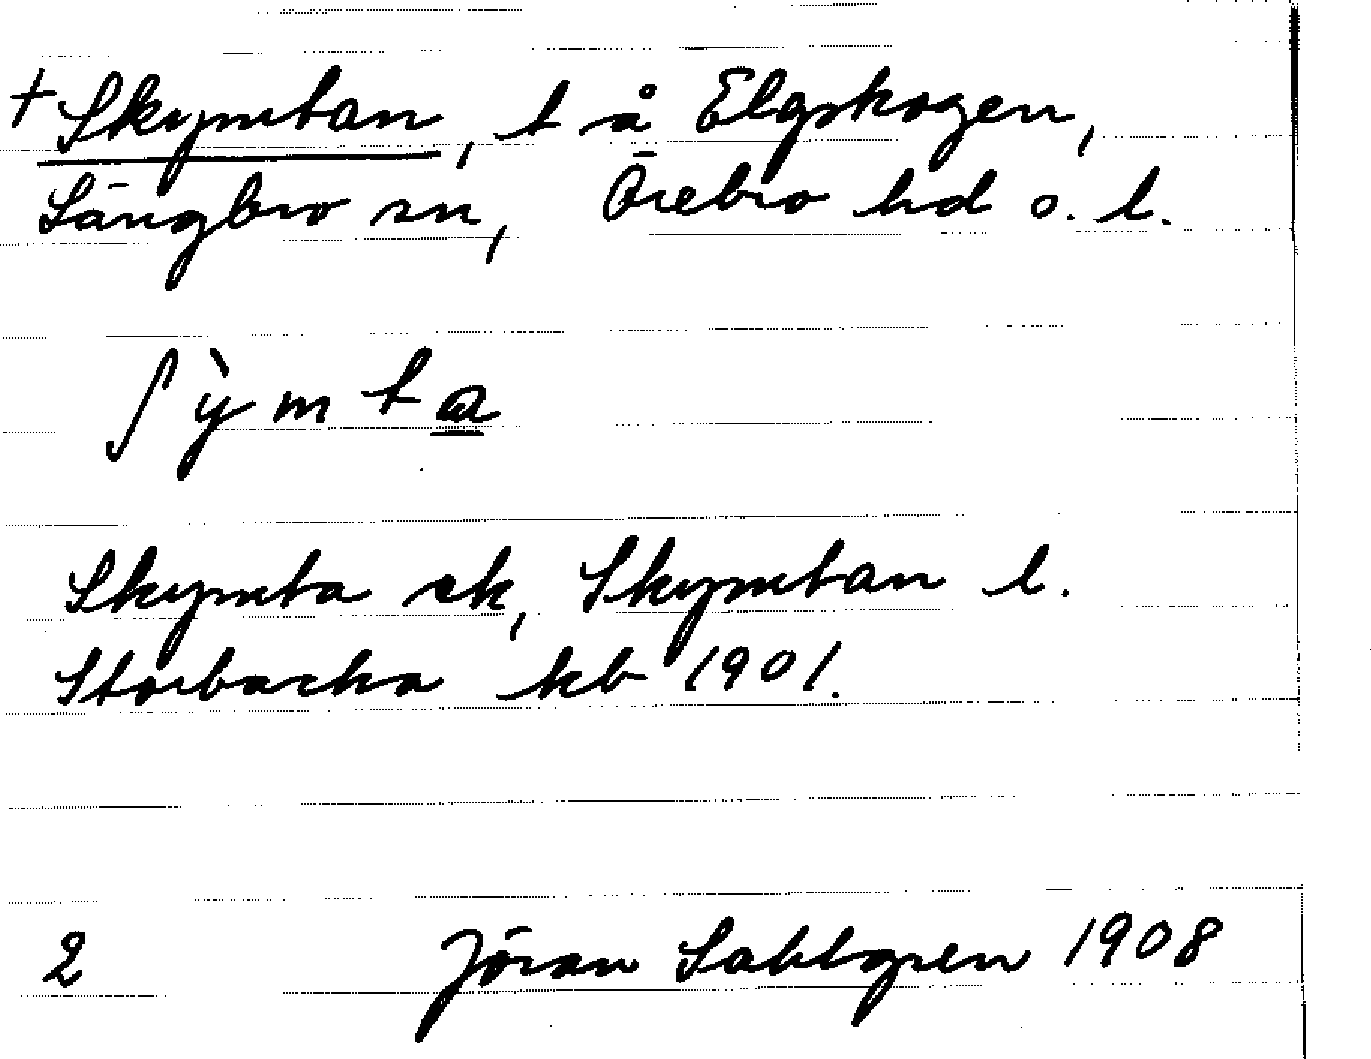 + Skymtan, t å Elgskogen,
Längbro sn, Örebro hd o. l.
ʃỳmta
Skymta ek, Skymtan l.
Storbacka kb 1901.
2 Jöran Sahlgren 1908